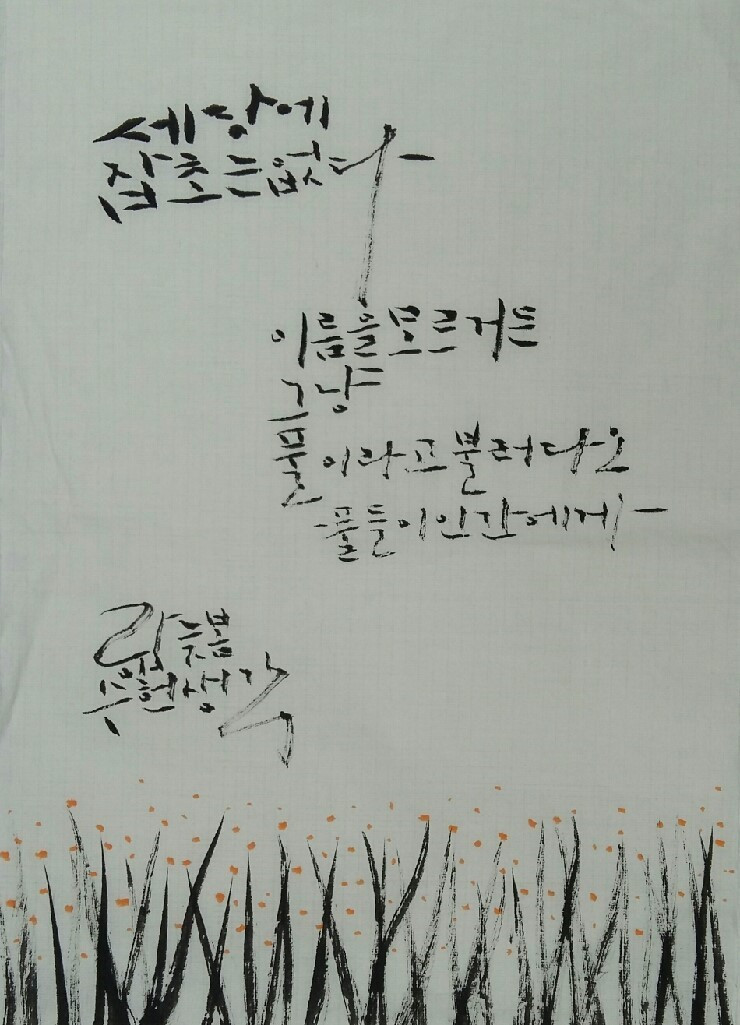 세상에
잡초는없다-
이름을모르거든
그냥
풀이라고불러다오
풀들이인간에게-
늦봄
생각